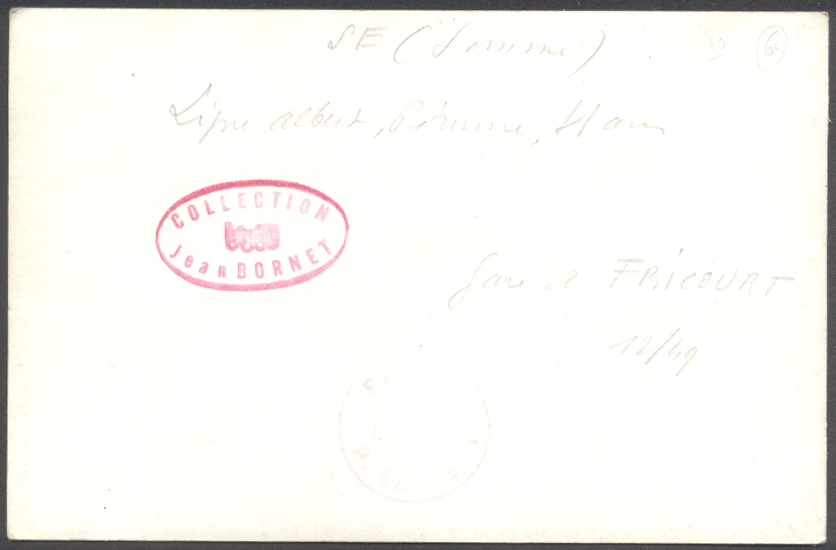 SE (Somme)
69
Ligne Albert, Péronne, Ham
COLLECTION
Jean BORNET
Gare de FRICOURT
12/49